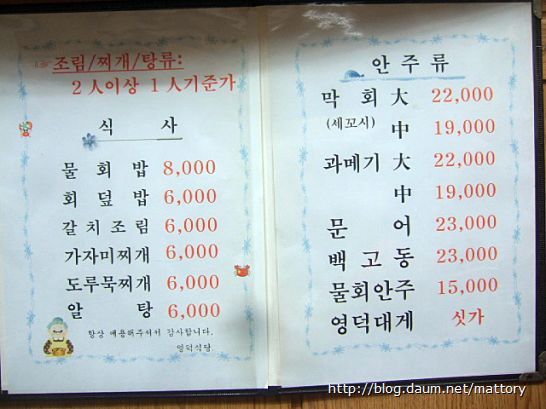 조림/찌개/탕류:
2人이상 1人기준가
식 사
물 회 밥 8,000
회 덮 밥 6,000
갈 치 조 림 6,000
가자미찌개 6,000
도루묵찌개 6,000
알 탕 6,000
항상 애용해주셔서 감사합니다.
영덕식당
안 주 류
막 회 大 22,000
(세꼬시) 中 19,000
과메기 大 22,000
中 19,000
문 어 23,000
백 고 동 23,000
물회안주 15,000
영덕대게 싯가
http://blog.daum.net/mattory